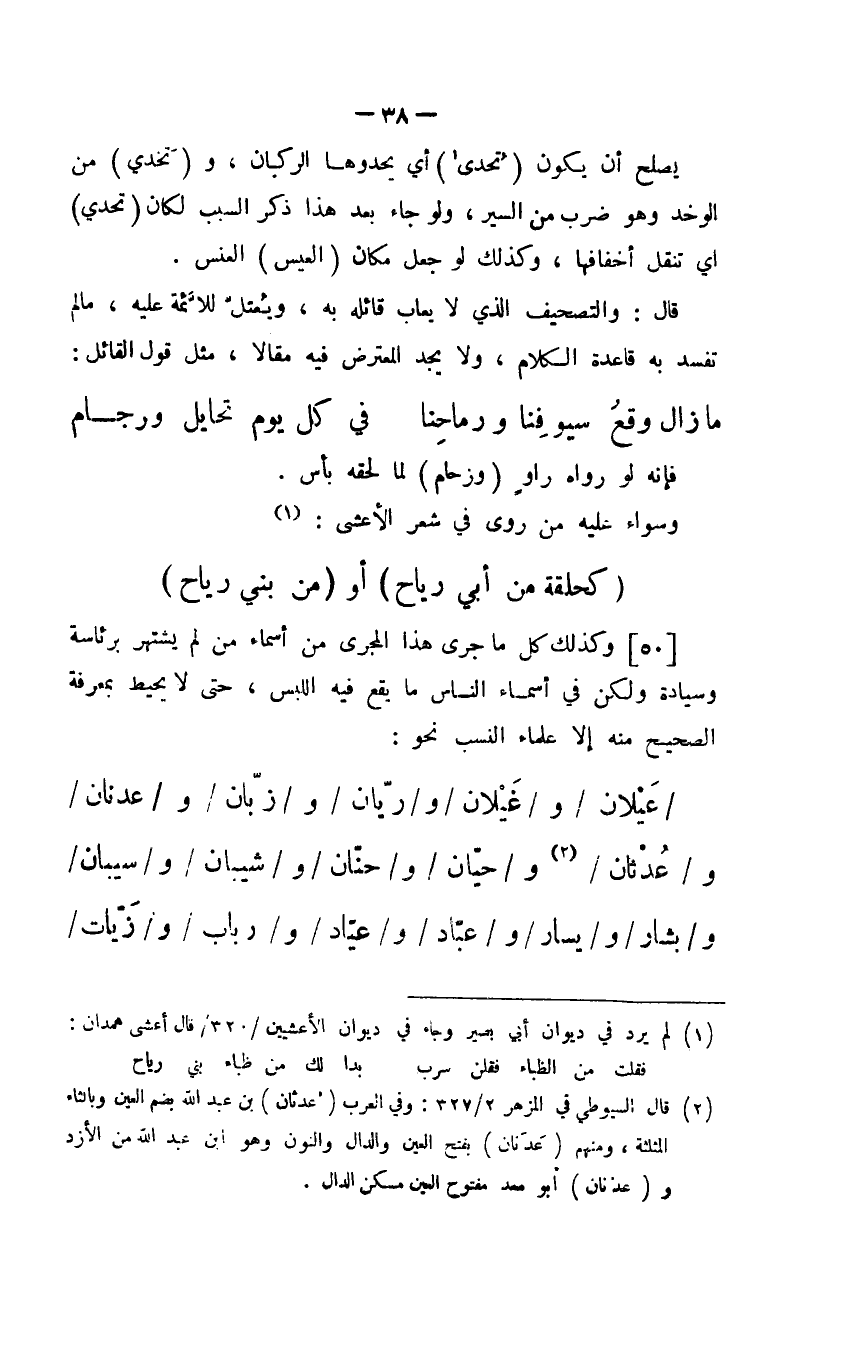 — ٣٨ —
يصلح أن يكون ( ُتحدى' ) أي يحدوهـا الركبان ، و ( َتخدي ) من
الوخد وهو ضرب من السير ، ولو جاء بعد هذا ذكر السبب لكان ( تحدي )
اي تنقل أخفافها ، وكذلك لو جعل مكان ( العيس ) العنس .
قال : والتصحيف الذي لا يعاب قائله به ، ويُعتلّ للأئمة عليه ، مالم
تفسد به قاعدة الكلام ، ولا يجد المعترض فيه مقالا ، مثل قول القائل :
ما زال وقعُ سيوفِنا ورماحِنا في كل يوم تحايل ورجـام
فإنه لو رواه راوٍ ( وزحام ) لما لحقه بأس .
وسواء عليه من روى في شعر الأعشى : (١)
( كحلقة من أبي رياح ) أو ( من بني رياح )
[٥٠] وكذلك كل ما جرى هذا المجرى من أسماء من لم يشتهر برئاسة
وسيادة ولكن في أسمـاء النـاس ما يقع فيه اللبس ، حتى لا يحيط بمعرفة
الصحيح منه إلا علماء النسب نحو :
/ عَيْلان / و / غَيْلان / و / ريّان / و / زبّان / و / عدنان /
و / عُدْثان / (٢) و / حيّان / و / حنّان / و / شيبان / و / سيبان /
و / بشار / و / يسار / و / عبّاد / و / عيّاد / و / رباب / و / زَيّات /
(١) لم يرد في ديوان أبي بصير وجاء في ديوان الأعشيين /٣٢٠/ قال أعشى همدان :
فقلت من الظباء فقلن سرب بدا لك من ظباء بني رياح
(٢) قال السيوطي في المزهر ٣٢٧/٢ : وفي العرب ( ُعدثان ) بن عبد الله بضم العين وبالثاء
المثلثة ، ومنهم ( عَدَنان ) بفتح العين والدال والنون وهو ابن عبد الله من الأزد
و ( عدنان ) أبو معد مفتوح العين مسكن الدال .